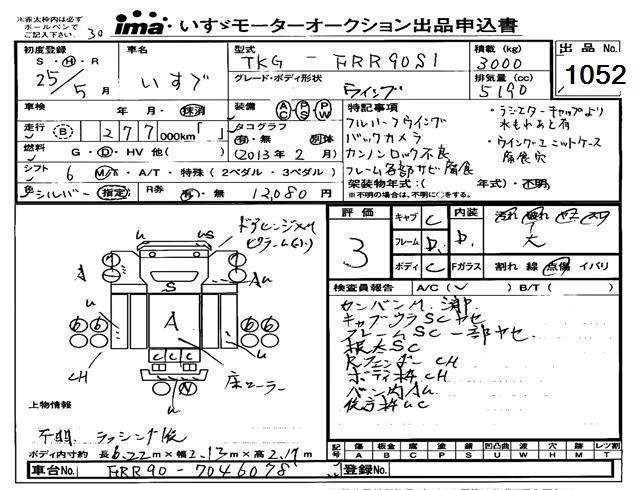 ※赤太枠内は必ず
ボールペンで
ご記入下さい。
30
ima いすゞモーターオークション出品申込書
初度登録
S・H・R
25/5月
車名
いすゞ
型式
TKG-FRR90S1
積載 (kg)
3000
出品 No.
1052
グレード・ボディ形状
ウイング
排気量 (cc)
5190
車検 年・月・抹消
装備 AC PS PW
特記事項
走行 (B) 277,000km「 」
タコグラフ
有・無 別体
(2013年2月)
燃料 G・D・HV 他( )
シフト 6 M/T・A/T・特殊(2ペダル・3ペダル)
色 シルバー(指定)
R券 有・無 12,080円
フルハーフウイング
バックカメラ
カンノンロック不良
フレーム各部サビ腐食
・ラジエターキャップより
水もれあと有
・ウイングユニットケース
腐食穴
架装物年式:( 年式)・不明
※不明の場合は、不明に○をする。
評価
3
キャブ C
フレーム D
ボディ C
内装 D
汚れ 破れ
大
Fガラス 割れ 線 点傷 イバリ
検査員報告 A/C(✓) B/T( )
カンバンM. 消郡
キャブウラSCヤセ
フレームSC一部ヤセ
根太SC
RフェンダーCH
ボディ枠CH
バン内AU
後方枠UC
ドアヒンジ
ピラー
u
us
S
AU
A
u
u
b b
b b
C C C
CH
床
上物情報
不明 ラッシング
ボディ内寸約 長6.22m×幅2.13m×高2.17m
車台No. FRR90-7046078
登録No.
記号 傷 板金 腐 塗 錆 凹凸曲 補 穴 目 跡 レツ割
A B C P S U W H M T L